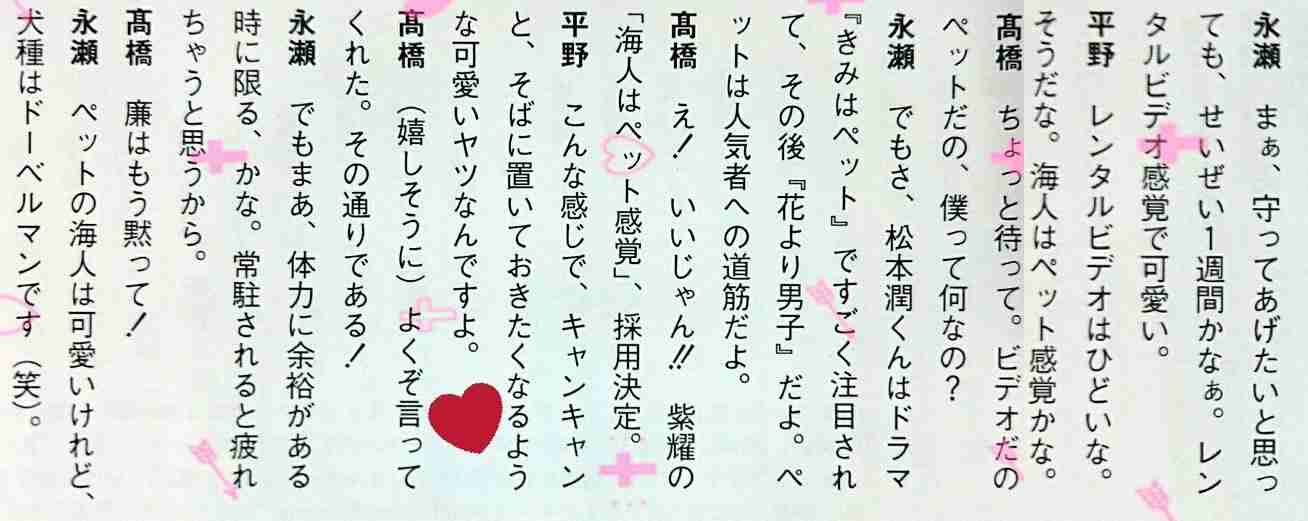 永瀬　まぁ、守ってあげたいと思っ
ても、せいぜい1週間かなぁ。レン
タルビデオ感覚で可愛い。
平野　レンタルビデオはひどいな。
そうだな。海人はペット感覚かな。
髙橋　ちょっと待って。ビデオだの
ペットだの、僕って何なの？
永瀬　でもさ、松本潤くんはドラマ
『きみはペット』ですごく注目され
て、その後『花より男子』だよ。ペ
ットは人気者への道筋だよ。
髙橋　え！　いいじゃん!!　紫耀の
「海人はペット感覚」、採用決定。
平野　こんな感じで、キャンキャン
と、そばに置いておきたくなるよう
な可愛いヤツなんですよ。
髙橋　（嬉しそうに）よくぞ言って
くれた。その通りである！
永瀬　でもまあ、体力に余裕がある
時に限る、かな。常駐されると疲れ
ちゃうと思うから。
髙橋　廉はもう黙って！
永瀬　ペットの海人は可愛いけれど、
犬種はドーベルマンです（笑）。